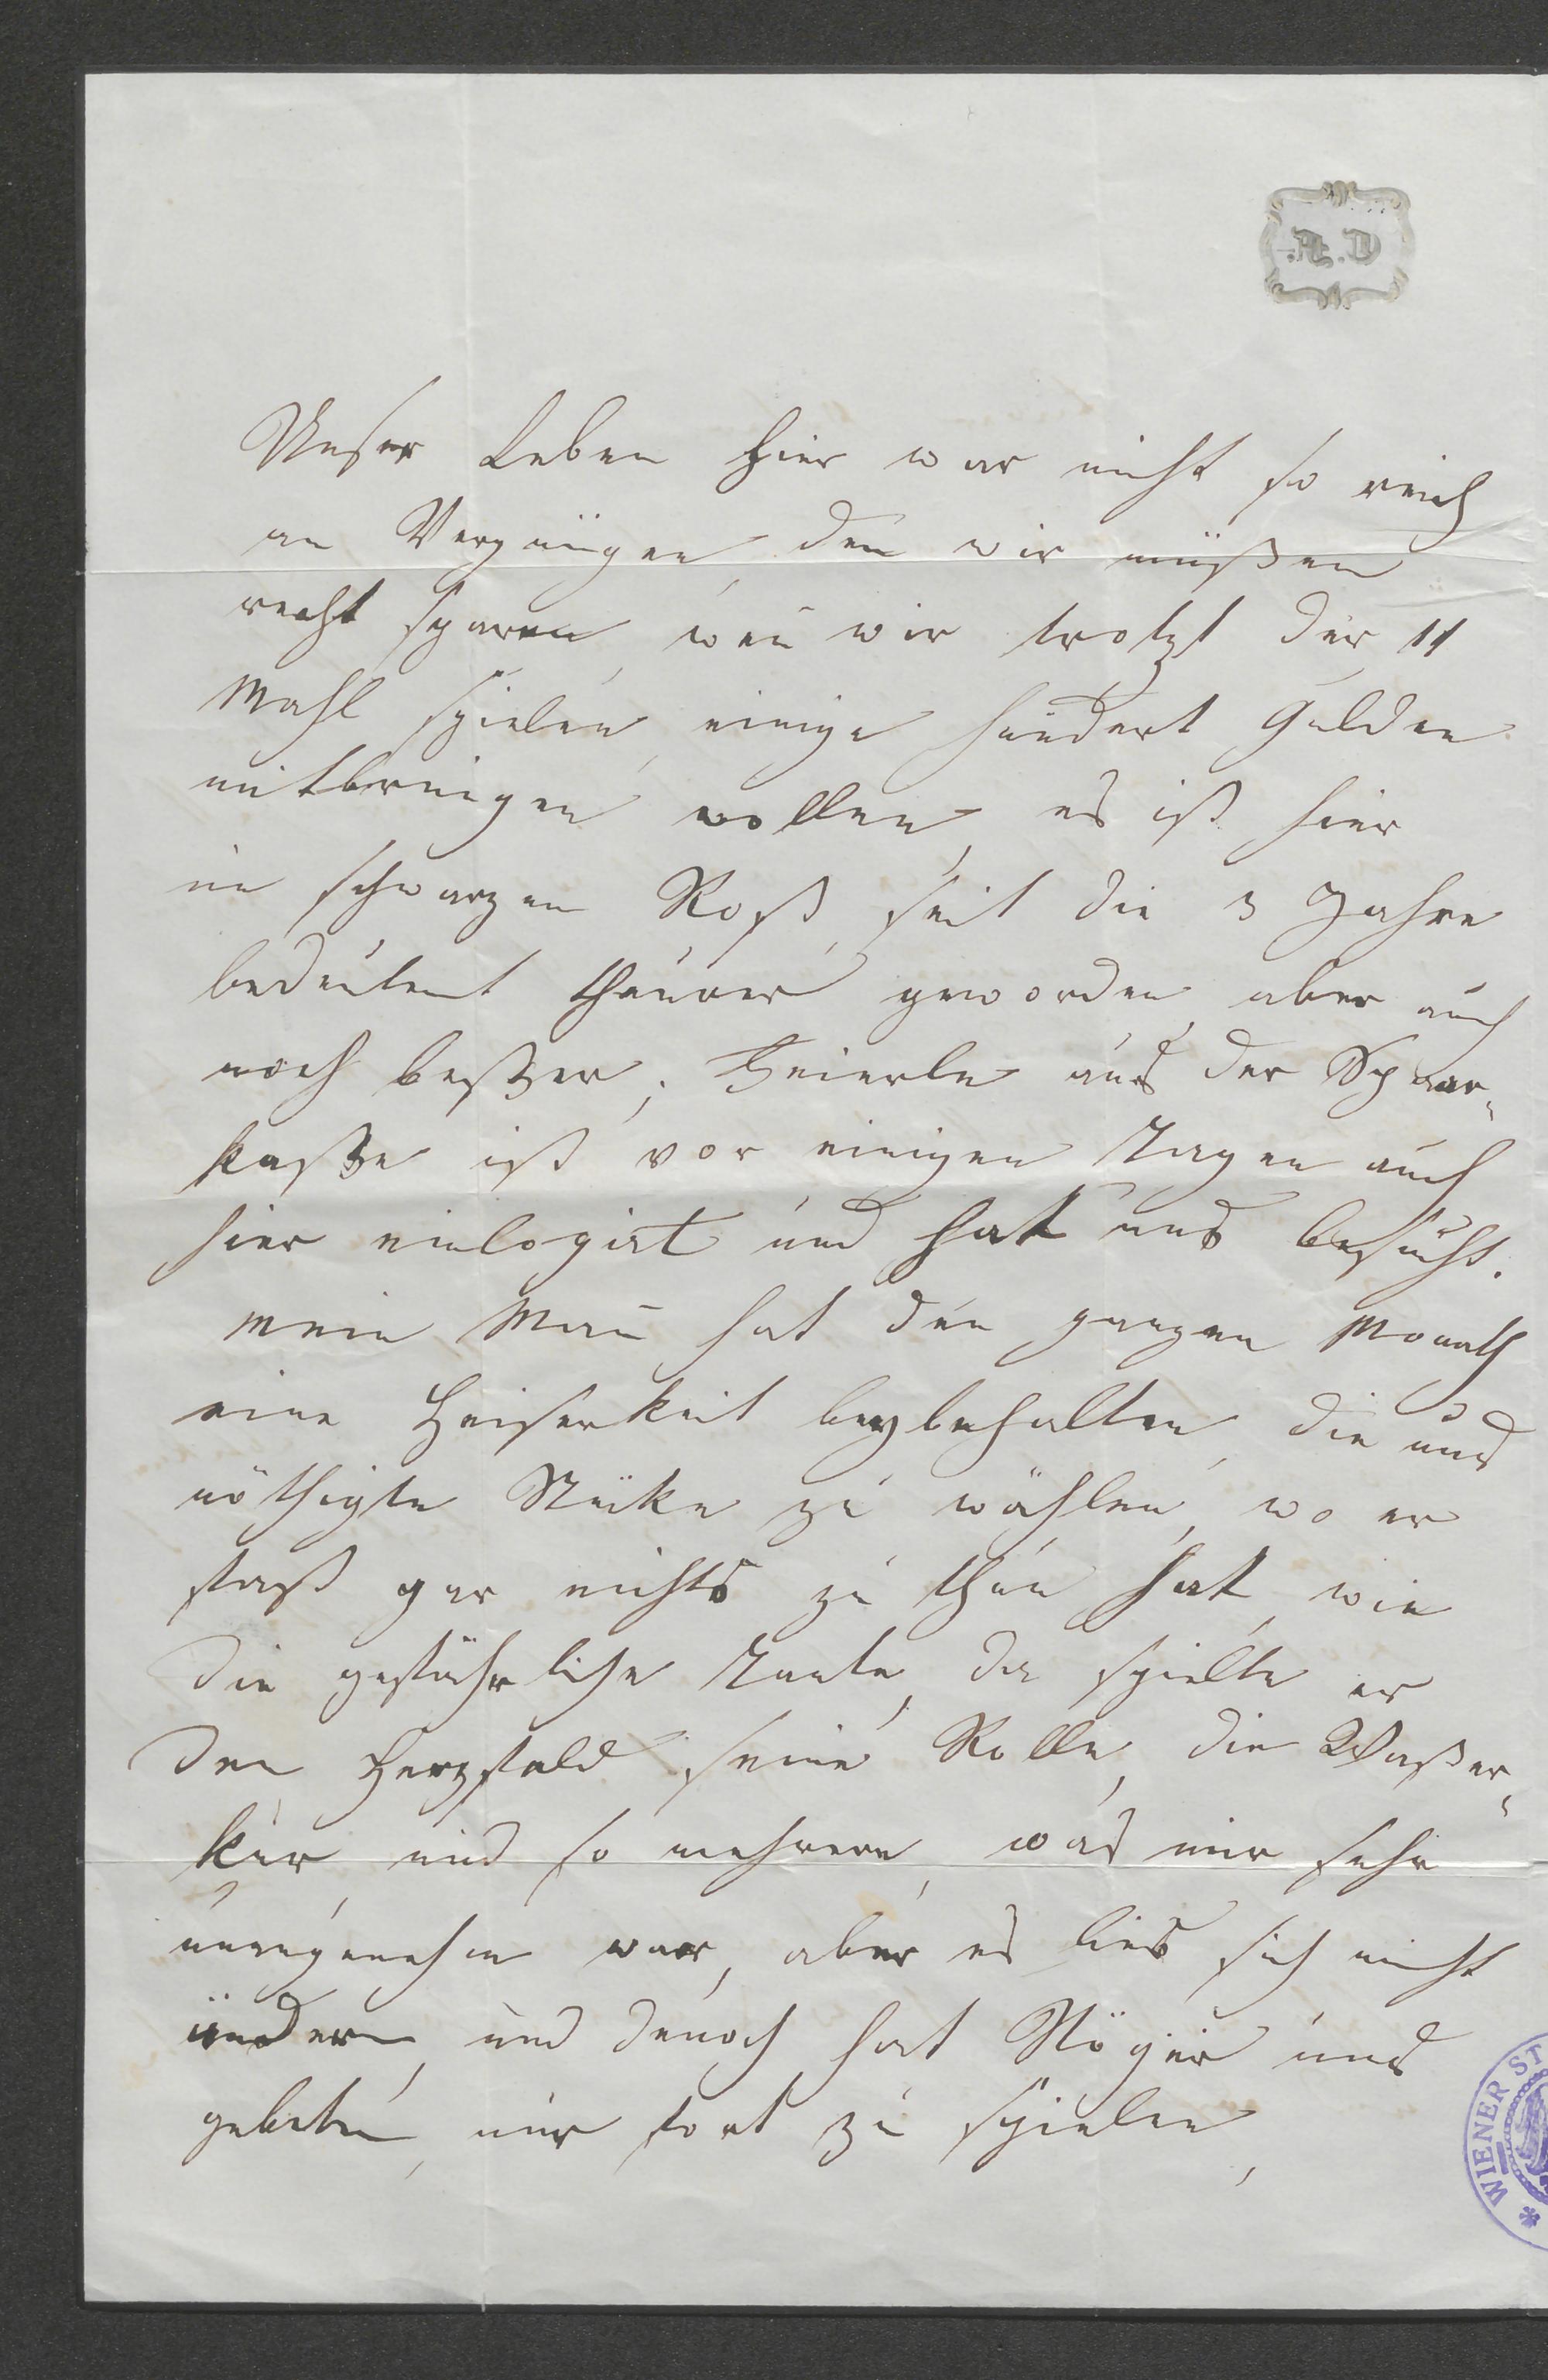 A. D.
Unser Leben hier war nicht so reich
an Vergnügen, den̄ wir müßen
recht sparen, wen̄ wir trotzt der 11
Mahl spielen, einige hundert Gulden
mitbringen wollen, es ist hier
im schwarzen Roß, seit die 3 Jahre
bedeutent theurer geworden, aber auch
noch beßer, aus der Spaar-
kaße ist vor einigen Tagen auch
hier einlogirt und hat uns besucht.
Mein Man̄ hat den ganzen Monath
eine Heiserkeit beybehalten, die uns
nöthigte Stüke zu wählen, wo er
fast gar nichts zu thun hat, wie
die gefährliche Tante, da spielte er
den Herzfeld seine Rolle, die Waßer-
kur, und so mehrere, was mir sehr
unangenehm war, aber es lies sich nicht
ändern, und den̄och hat Stöger uns
gebeten, nur fort zu spielen,
WIENER ST